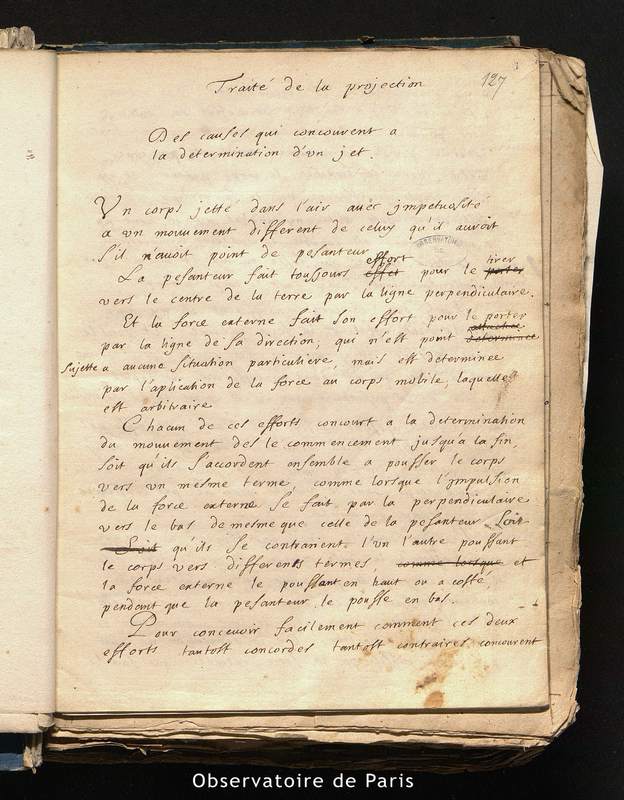 127
Traité de la projection
Des causes qui concourent a
la determination d'vn jet.
Vn corps jetté dans l'air auec jmpetuosité
a vn mouuement different de celuy qu'il auroit
s'il n'auoit point de pesanteur
effort tirer
La pesanteur fait tousjours effet pour le porter
vers le centre de la terre par la ligne perpendiculaire.
Et la force externe fait son effort pour le porter
attachée
par la ligne de sa direction, qui n'est point determinée
sujette a aucune situation particuliere, mais est determinee
par l'aplication de la force au corps mobile, laquelle
est arbitraire
Chacun de ces efforts concourt a la determination
du mouuement des le commencement jusqu'a la fin,
soit qu'ils s'accordent ensemble a pousser le corps
vers vn mesme terme, comme lorsque l'jmpulsion
de la force externe se fait par la perpendiculaire
vers le bas de mesme que celle de la pesanteur, soit
Soit qu'ils se contrarient l'vn l'autre poussant
le corps vers differents termes, comme lorsque et
la force externe le poussant en haut ou a costé,
pendant que la pesanteur le pousse en bas.
Pour conceuoir facilement comment ces deux
efforts tantost concordes tantost contraires concourent
Observatoire de Paris